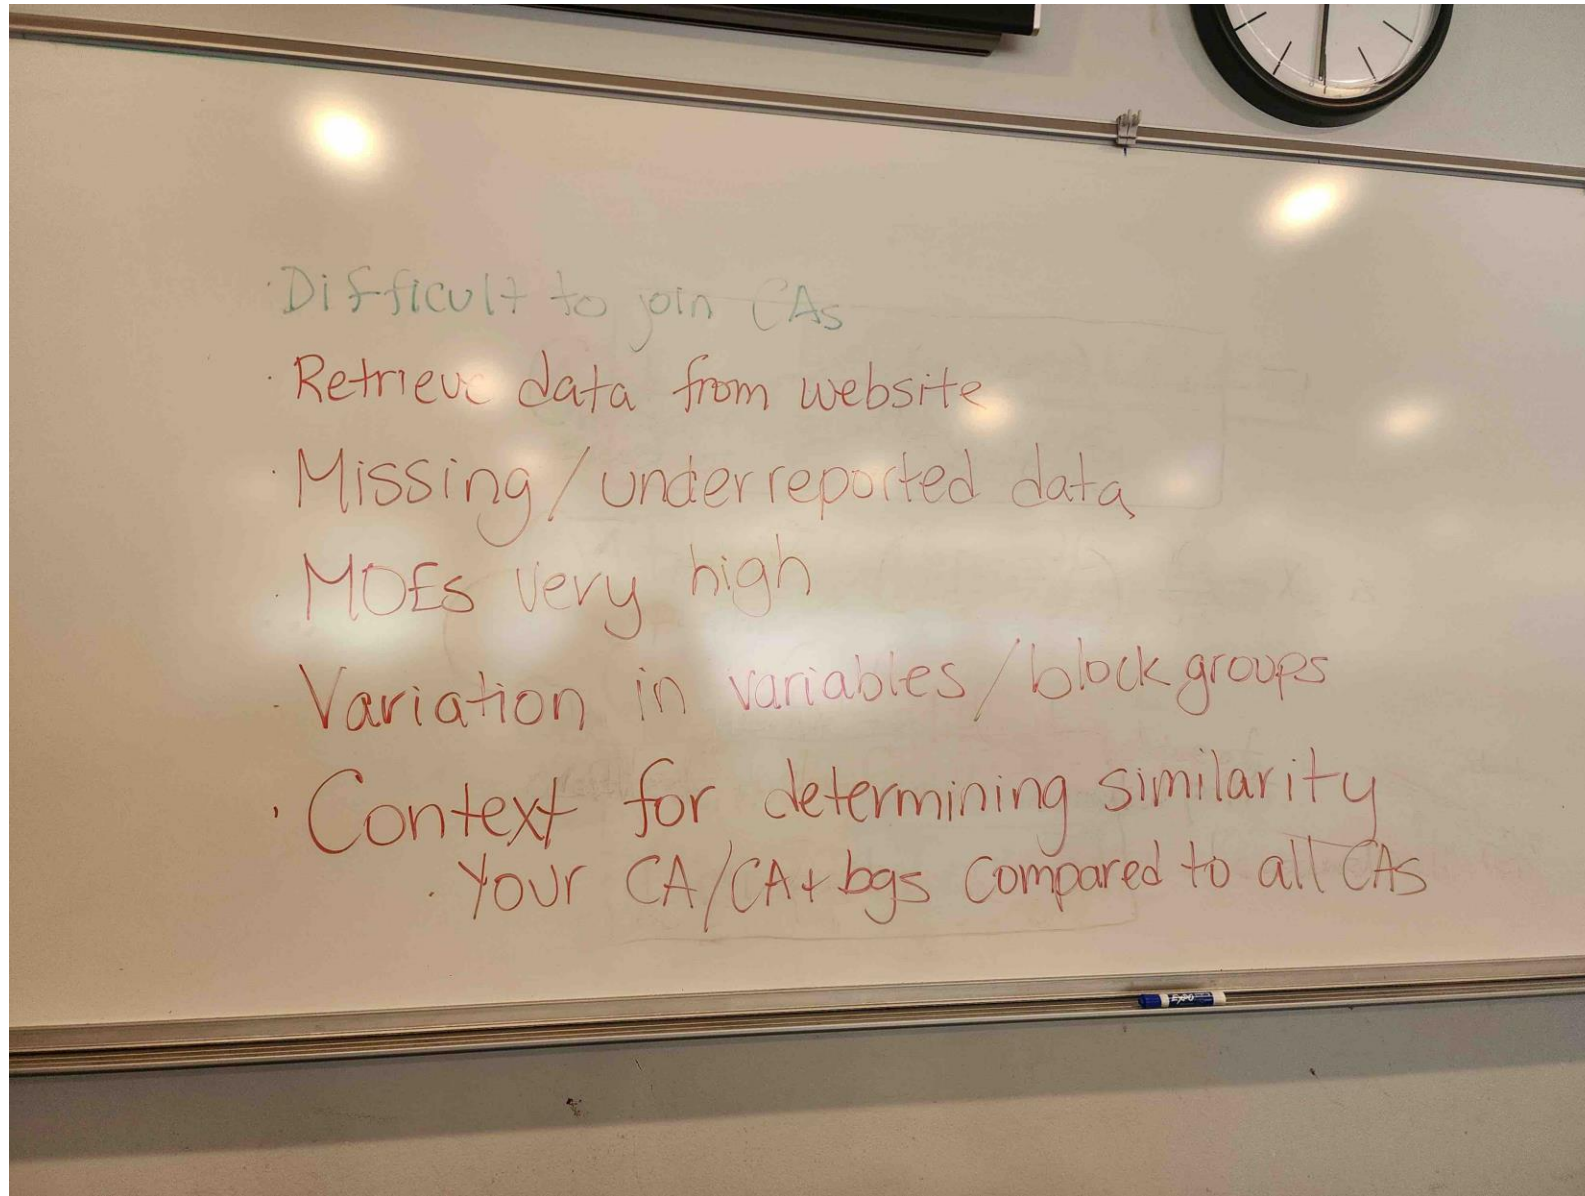 · Difficult to join CAs
· Retrieve data from website
· Missing/underreported data
· MOEs very high
· Variation in variables/block groups
· Context for determining similarity
· Your CA/CA+bgs compared to all CAs
EXPO